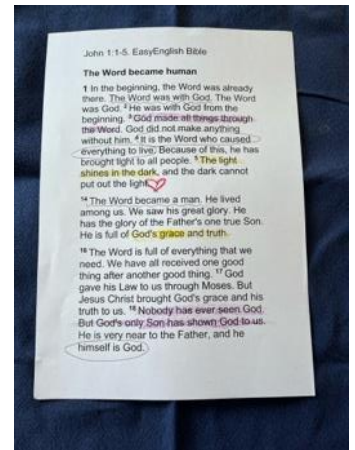 John 1:1-5. EasyEnglish Bible
The Word became human
1 In the beginning, the Word was already
there. The Word was with God. The Word
was God. 2 He was with God from the
beginning. 3 God made all things through
the Word. God did not make anything
without him. 4 It is the Word who caused
everything to live. Because of this, he has
brought light to all people. 5 The light
shines in the dark, and the dark cannot
put out the light.
14 The Word became a man. He lived
among us. We saw his great glory. He
has the glory of the Father's one true Son.
He is full of God's grace and truth.
16 The Word is full of everything that we
need. We have all received one good
thing after another good thing. 17 God
gave his Law to us through Moses. But
Jesus Christ brought God's grace and his
truth to us. 18 Nobody has ever seen God.
But God's only Son has shown God to us.
He is very near to the Father, and he
himself is God.